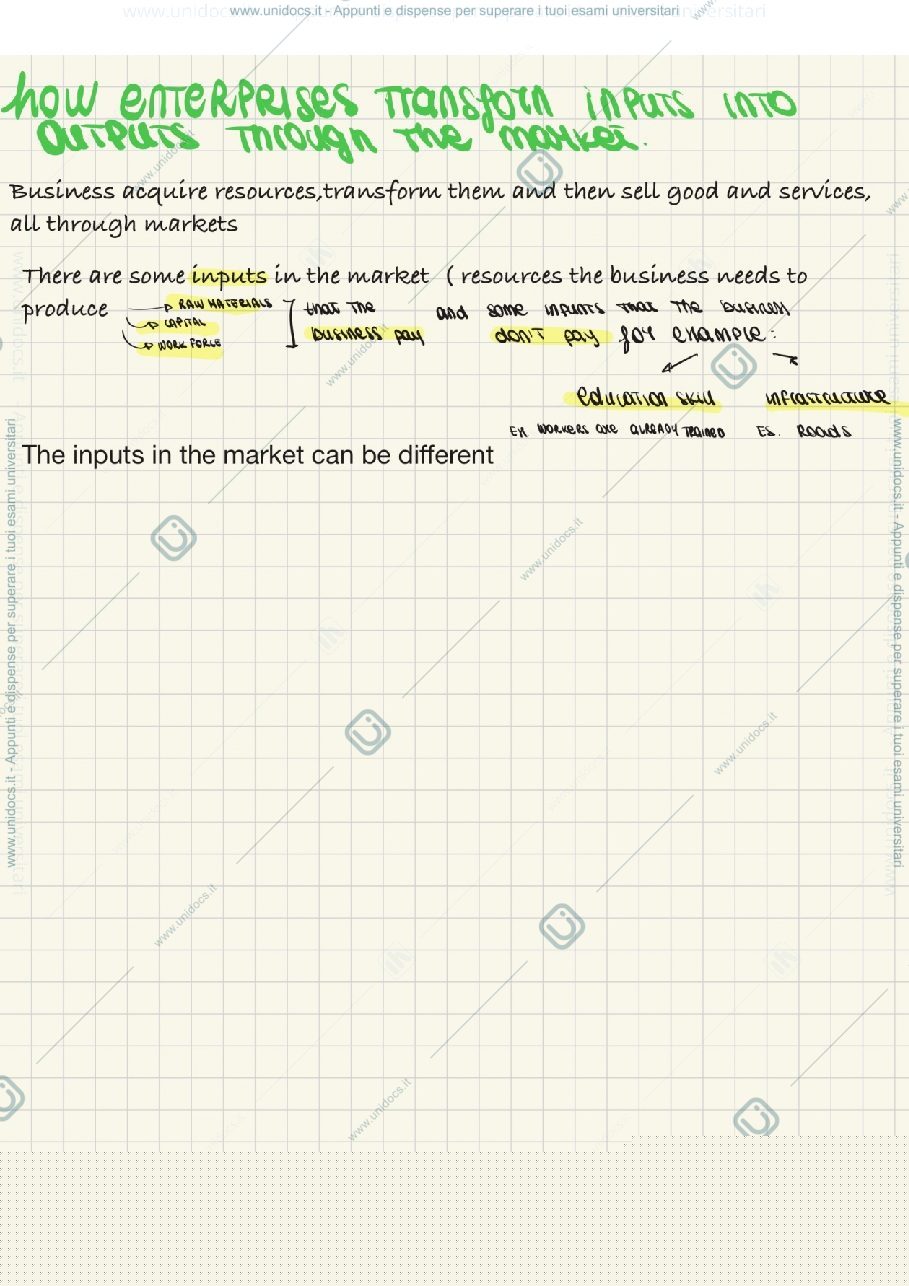 www.unidocs.it - Appunti e dispense per superare i tuoi esami universitari
how enterprises transform inputs into
outputs through the market.
Business acquire resources,transform them and then sell good and services,
all through markets
There are some inputs in the market ( resources the business needs to
produce RAW MATERIALS that the and some inputs that the business
CAPITAL business pay don't pay for example:
WORK FORCE
education skill infrastructure
EX WORKERS are ALREADY TRAINED ES. Roads
The inputs in the market can be different
www.unidocs.it - Appunti e dispense per superare i tuoi esami universitari
www.unidocs.it - Appunti e dispense per superare i tuoi esami universitari
www.unidocs.it
www.unidocs.it
www.unidocs.it
www.unidocs.it
www.unidocs.it
www.unidocs.it